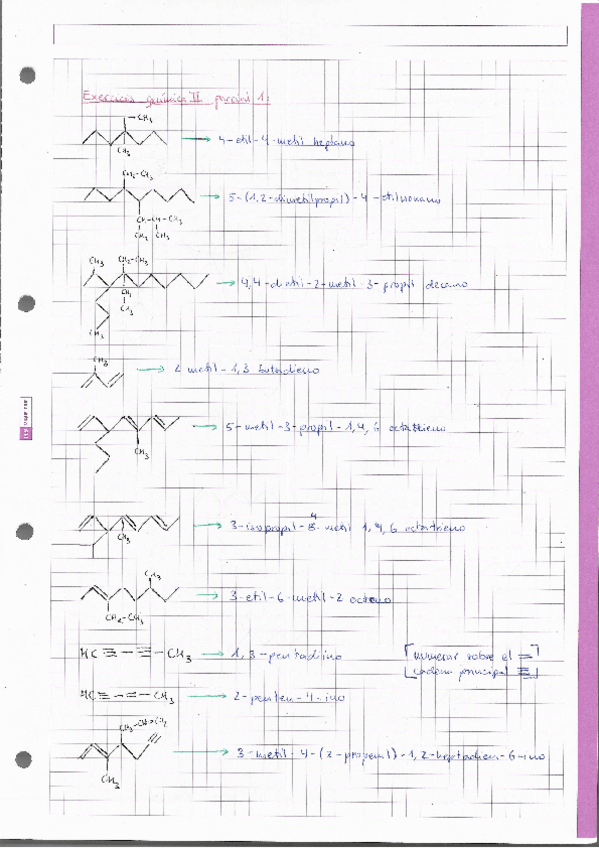 Exercicios química II parcial 1:
CH₃
CH₃
4-etil-4-metil heptano
CH₂-CH₃
5-(1,2-dimetilpropil)-4-etilnonano
CH-CH-CH₃
CH₃ CH₃
CH₃ CH₂-CH₃
4,4-dietil-2-metil-3-propil decano
CH₂
CH₃
CH₃
CH₃
2 metil-1,3 butadieno
5-metil-3-propil-1,4,6 octatrieno
CH₃
4
3-isopropil-8-metil 1,4,6 octatrieno
CH₃
CH₃
3-etil-6-metil-2 octeno
CH₂-CH₃
HC≡-≡-CH₃ 1,3-pentadiino
numerar sobre el =
cadena principal ≡
HC≡-=-CH₃ 2-penten-4-ino
3-metil-4-(2-propenil)-1,2-heptadien-6-ino
CH₃